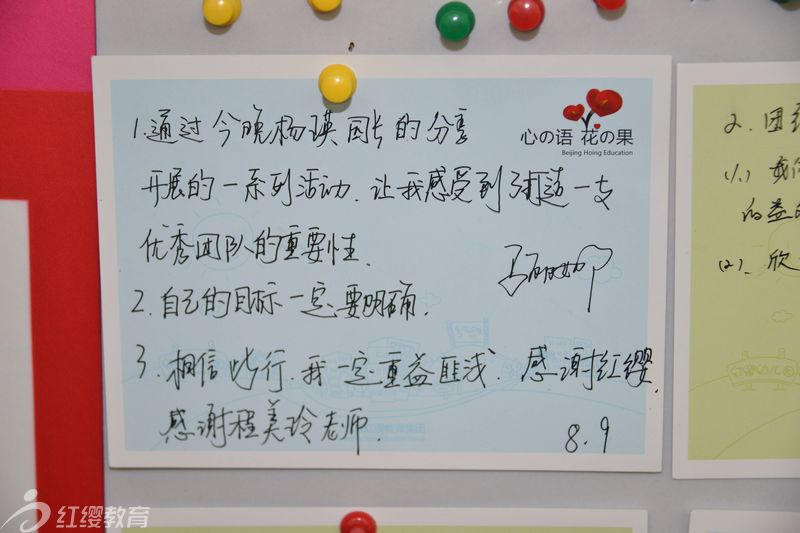 心の语 花の果
Beijing Hoing Education
1.通过今晚杨瑛园长的分享
开展的一系列活动.让我感受到了打造一支
优秀团队的重要性.
2.自己的目标一定要明确.
3.相信此行.我一定重益匪浅.感谢红缨.
感谢程美玲老师.
8.9
2.团
(1.)
(2).欣
红缨教育集团
红缨幼儿园
红缨教育